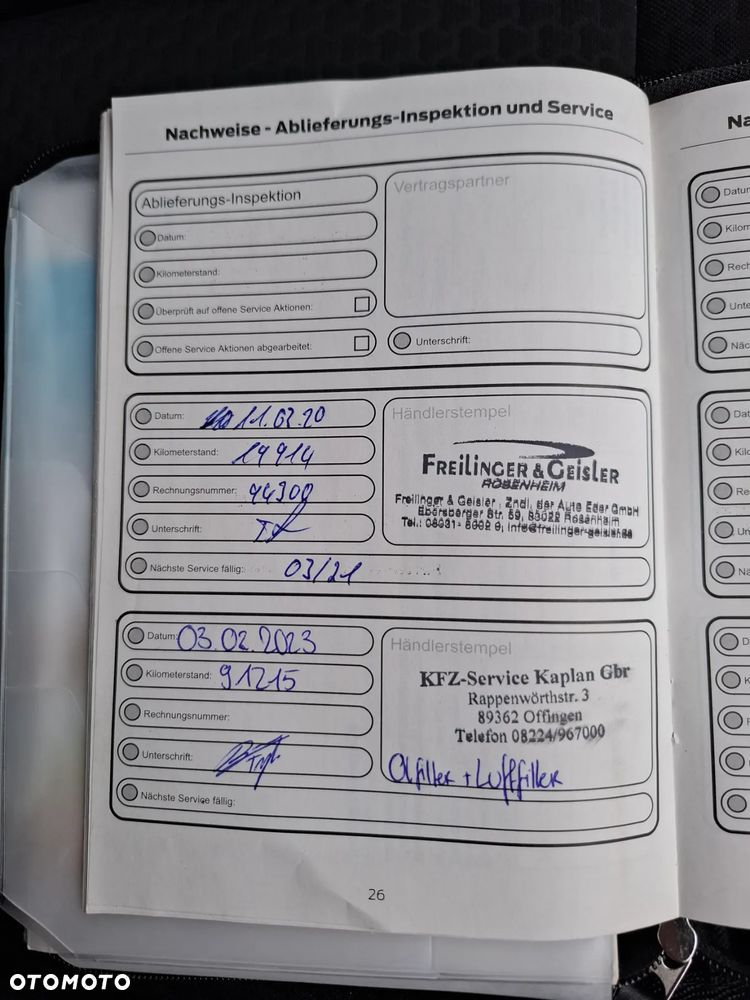 Nachweise - Ablieferungs-Inspektion und Service
Ablieferungs-Inspektion
Datum:
Kilometerstand:
Überprüft auf offene Service Aktionen:
Offene Service Aktionen abgearbeitet:
Vertragspartner
Unterschrift:
Datum: 11.03.20
Kilometerstand: 19914
Rechnungsnummer: 44300
Unterschrift:
Nächste Service fällig: 03/21
Händlerstempel
FREILINGER & GEISLER
ROSENHEIM
Freilinger & Geisler, Zndl. der Auto Eder GmbH
Ebersberger Str. 59, 83022 Rosenheim
Tel.: 08031-
Datum: 03.02.2023
Kilometerstand: 91215
Rechnungsnummer:
Unterschrift:
Nächste Service fällig:
Händlerstempel
KFZ-Service Kaplan Gbr
Rappenwörthstr. 3
89362 Offingen
Telefon 08224/967000
Ölfilter + Luftfilter
26
Na
Datum
Kilom
Rech
Unte
Näc
Dat
Kilo
Re
Un
Nä
D
K
R
OTOMOTO